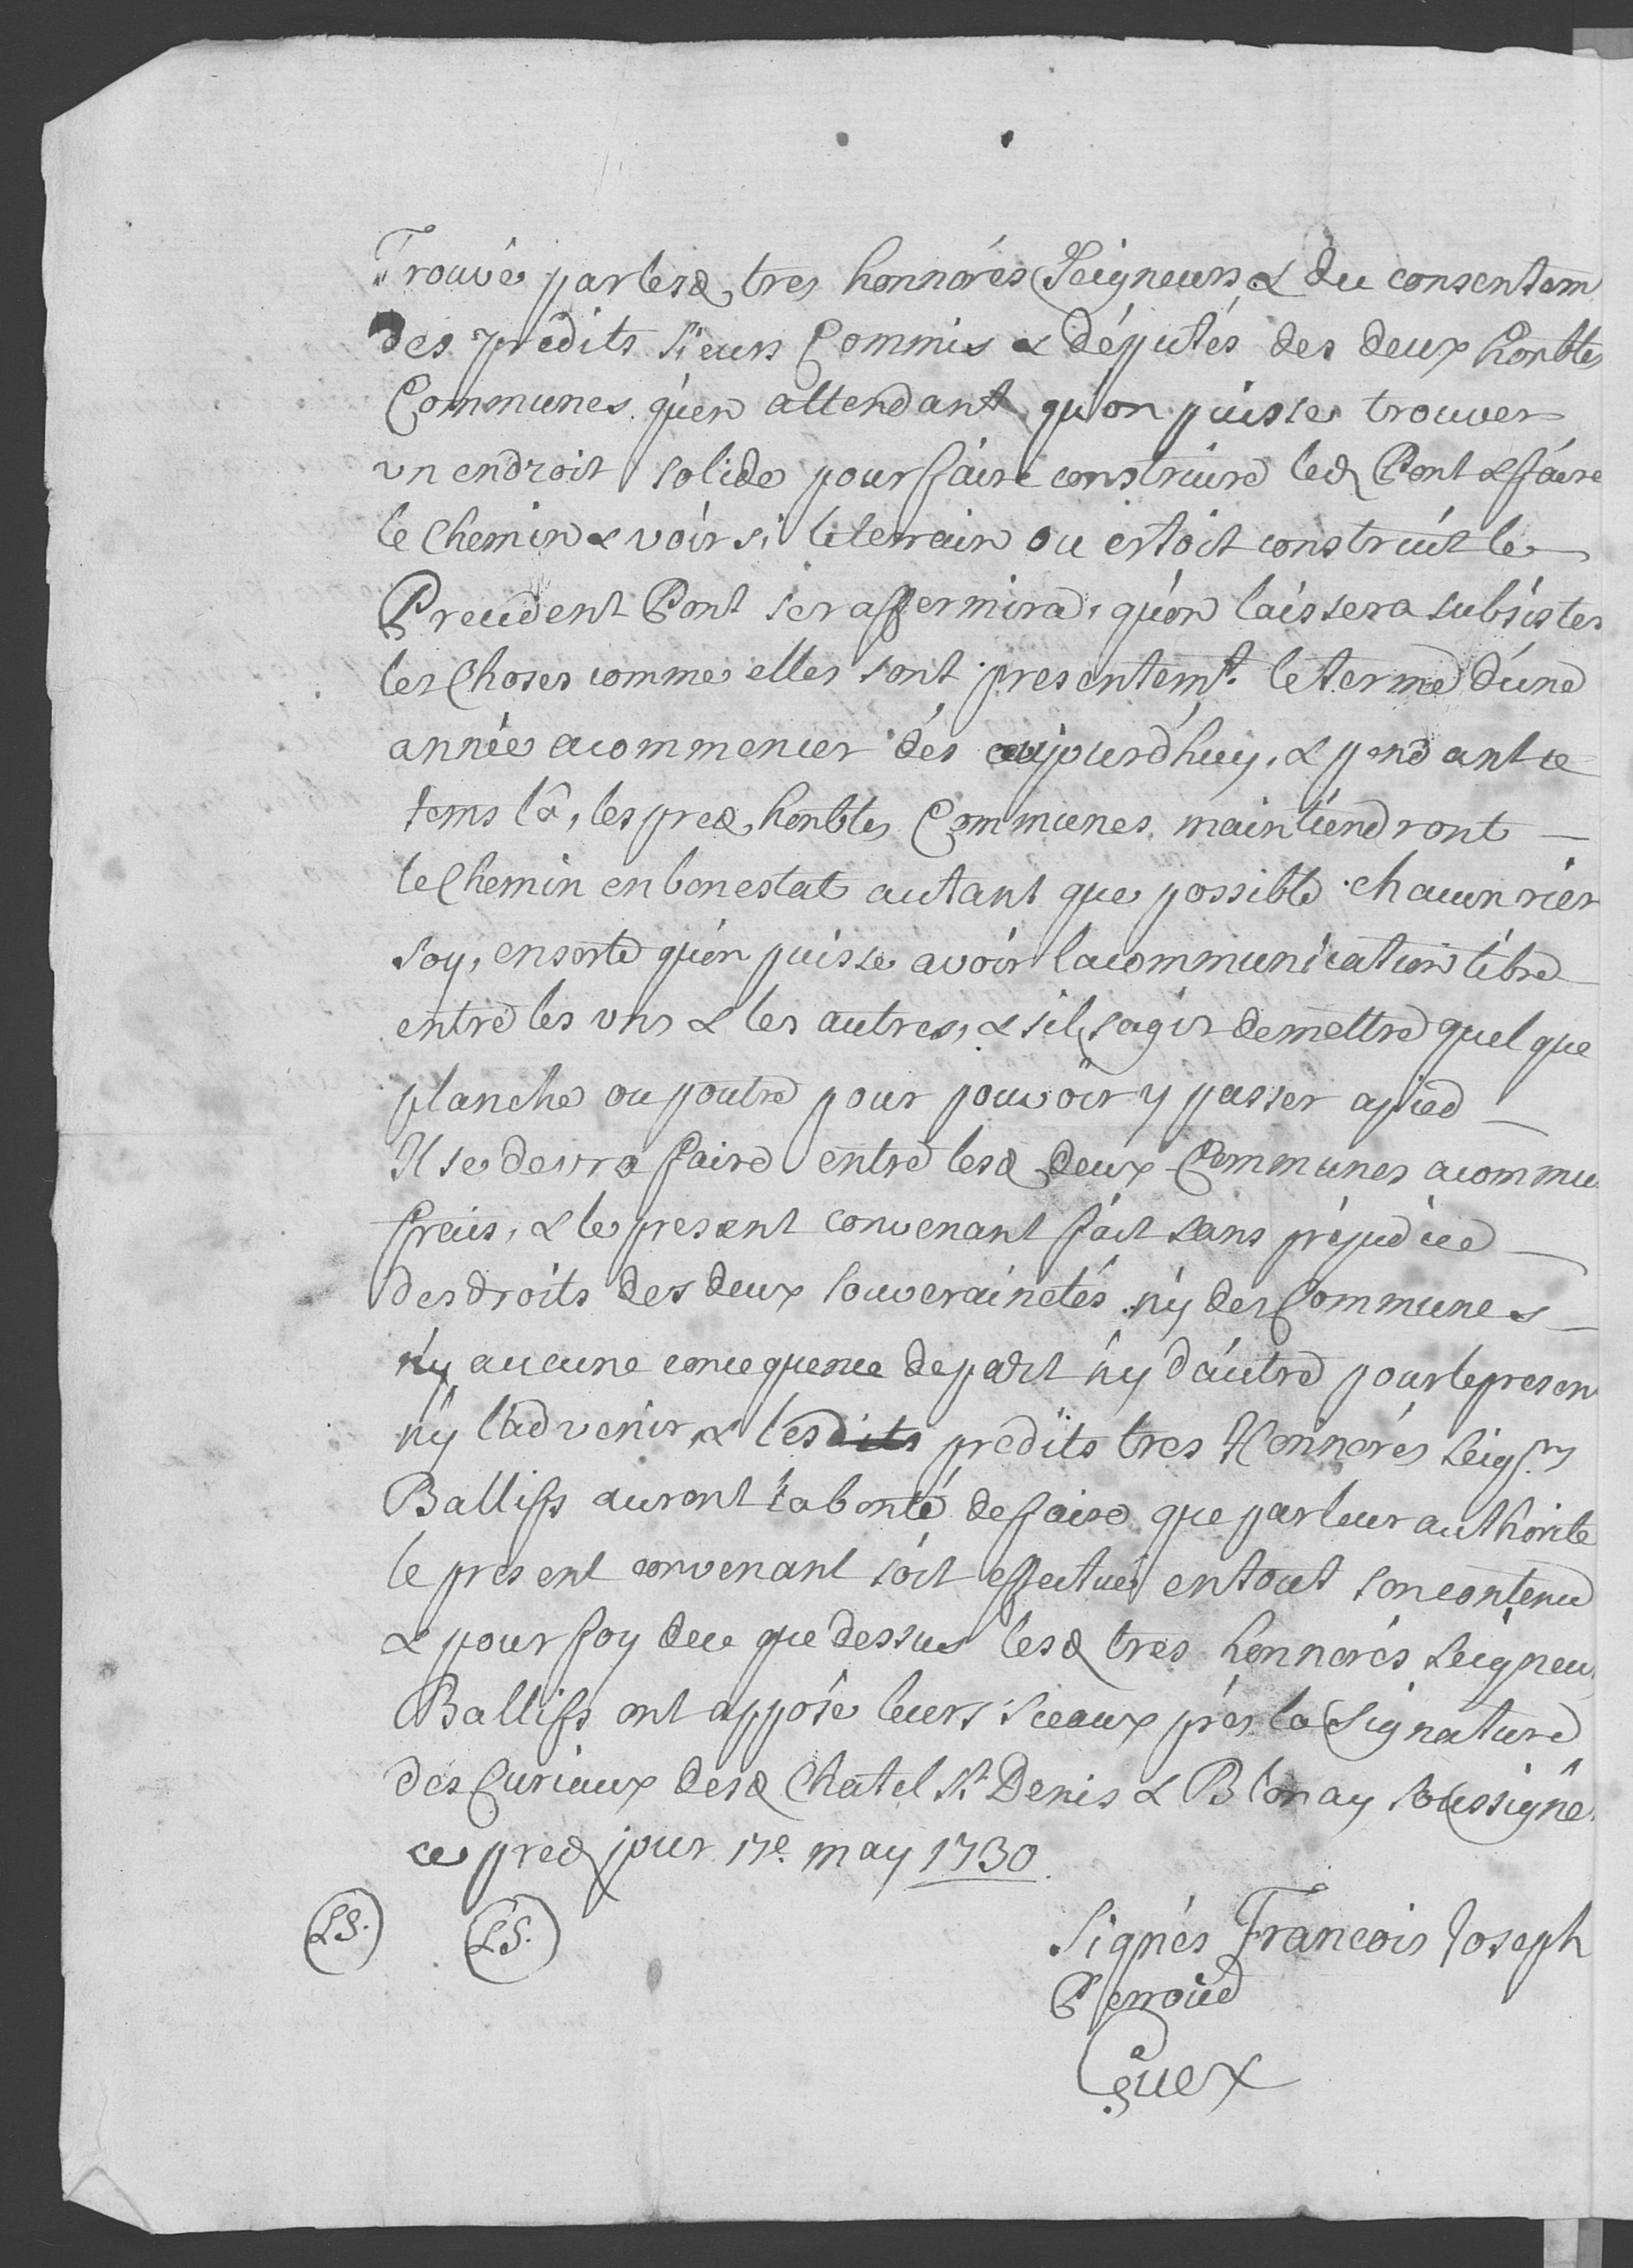 Trouvé par lesd. tres honnorés Seigneurs & du consentem
des predits Sieurs Commis & députés des deux honbles
Communes qu'en attendant qu'on puisse trouver
un endroit solide pour faire construire led. Pont & faire
le Chemin & voir si le terrain ou estoit construit le
Precedent Pont se raffermira, qu'on laissera subsister
les Choses comme elles sont presentemt. le terme d'une
année a commencer dés aujourd'huy, & pendant ce
tems là, les pred. honbles Communes maintiendront
le Chemin en bon estat autant que possible chacun rier
soy, ensorte qu'on puisse avoir la communication libre
entre les uns & les autres, & s'il s'agir de mettre quelque
planche ou poutre pour pouvoir y passer a pied
Il se devra faire entre lesd. deux Communes a commu
frais, & le present convenant fait sans préjudice
des droits des deux Souverainetés ny des Communes
ny aucune consequence de part ny d'autre pour le presen
ny l'advenir, & lesdits predits tres Honnorés Seigrs
Ballifs auront la bonté de faire que par leur authorite
le present convenant soit effectué en tout son contenu
& pour foy de ce que dessus lesd. tres honnorés Seigneu
Ballifs ont apposé leurs sceaux prés la Signature
des Curiaux desd. Chatel St. Denis & Blonay soussigné
ce pred. jour 17e. may 1730.
LS. LS.
Signés Francois Joseph
Perroud
Guex